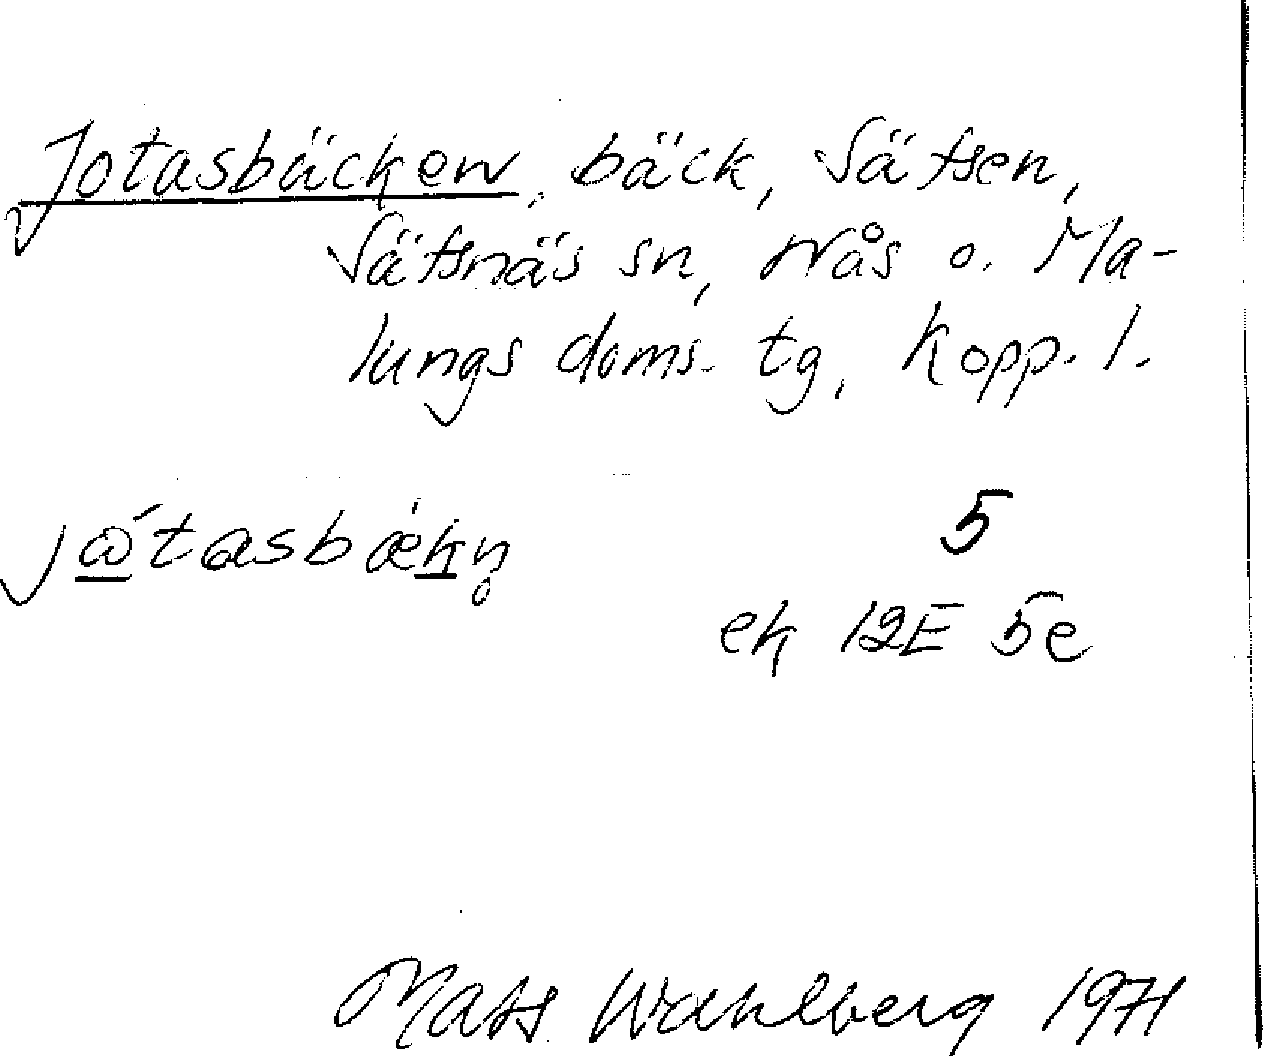 Jotasbäcken, bäck, Säfsen,
Säfsnäs sn, Nås o. Ma-
lungs doms. tg, Kopp. l.
jώtasbæ̀kn̥ 5
ek 12E 5e
Mats Wahlberg 1971